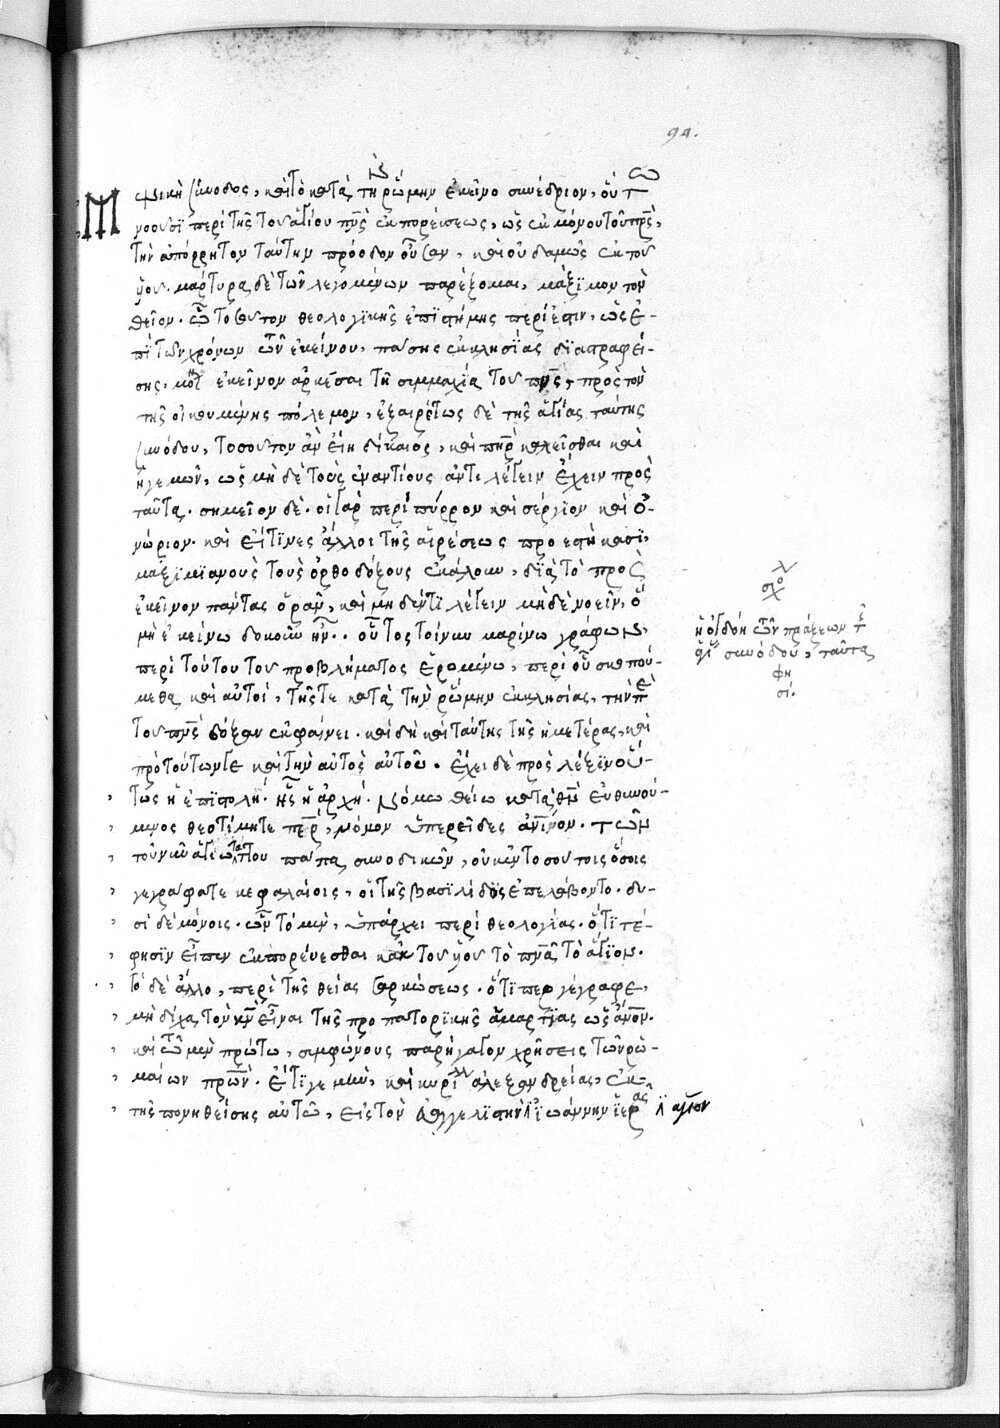 94.
φικὴ σύνοδος, καὶ τὸ κατὰ τὴν ῥώμην ἐκεῖνο συνέδριον, οὕτω
νοοῦσι περὶ τῆς τοῦ ἁγίου πνς ἐκπορεύσεως, ὡς ἐκ μόνου τοῦ πρς,
τὴν ἀπόρρητον ταύτην πρόοδον οὖσαν, καὶ οὐδαμῶς ἐκ τοῦ
υου. μάρτυρα δὲ τῶν λεγομένων παρέξομαι, μάξιμον τὸν
θεῖον. ᾧ τοσοῦτον θεολογικῆς ἐπιστήμης περίεστιν, ὡς ἐ-
πὶ τῶν χρόνων τῶν ἐκείνου, πάσης ἐκκλησίας διαστραφεί-
σης, μόνον ἐκεῖνον ἀρκέσαι τῇ συμμαχία τοῦ πνς, πρὸς τὸν
τῆς οἰκουμένης πόλεμον, ἐξαιρέτως δὲ τῆς ἁγίας ταύτης
συνόδου, τοσοῦτον ἂν εἴη δίκαιος, καὶ πηρ καλεῖσθαι καὶ
ἡγεμὼν, ὡς μὴ δὲ τοὺς ἐναντίους ἀντιλέγειν ἔχειν πρὸς
ταῦτα. σημεῖον δέ. οἱ γὰρ περὶ πύρρον καὶ σέργιον καὶ ὀ-
νώριον. καὶ εἴ τινες ἄλλοι τῆς αἱρέσεως προεστήκασι,
μαξιμιανοὺς τοὺς ὀρθοδόξους ἐκάλουν, διὰ τὸ πρὸς
ἐκεῖνον πάντας ὁρᾶν, καὶ μηδέν τι λέγειν μηδὲ νοεῖν, ὃ
μὴ ἐκείνω δοκοῦν ἦν. οὗτος τοίνυν μαρίνω γράφων,
περὶ τούτου τοῦ προβλήματος ἐρομένω, περὶ οὗ σκοπού-
μεθα καὶ αὐτοὶ, τῆς τε κατὰ τὴν ῥώμην ἐκκλησίας, τὴν περὶ
τοῦ πνς δόξαν ἐκφαίνει. καὶ δὴ καὶ ταύτης τῆς ἡμετέρας, καὶ
πρὸ τούτων γε καὶ τὴν αὐτὸς αὐτοῦ. ἔχει δὲ πρὸς λέξιν οὕ-
τως ἡ ἐπιστολή. ἧς ἡ ἀρχή. νόμω θείω κατὰ θν εὐθυνού-
μενος θεοτίμητε περ, νόμον ὑπερεῖδες ἀνινον. τῶν
τοῦ νῦν ἁγιωτάτου πάπα συνοδικῶν, οὐκ ἐν τοσούτοις ὅσοις
γεγράφατε κεφαλαίοις, οἱ τῆς βασιλίδος ἐπελάβοντο. δυ-
σὶ δὲ μόνοις. ὧν τὸ μὲν, ὑπάρχει περὶ θεολογίας. ὅτι τέ-
φησιν εἶπεν ἐκπορεύεσθαι κἀκ τοῦ υου τὸ πνα τὸ ἅγιον.
τὸ δὲ ἄλλο, περὶ τῆς θείας σαρκώσεως. ὅτιπερ γέγραφε,
μὴ δίχα τὸν κν εἶναι τῆς προπατορικῆς ἁμαρτίας ὡς ἄνον.
καὶ τῷ μὲν πρώτω, συμφώνους παρήγαγον χρήσεις τῶν ῥω-
μαίων πρων. ἔτι γε μὴν, καὶ κυρίλλ ἀλεξανδρείας, ἐκ
τῆς πονηθείσης αὐτῶ, εἰς τὸν εὐαγγελιστὴν ἰωάννην ἱερᾶς ἅγιον
σχολ
ἡ ὀγδόη τῶν πράξεων τῆς
συνόδου, ταῦτα
φη
σί.